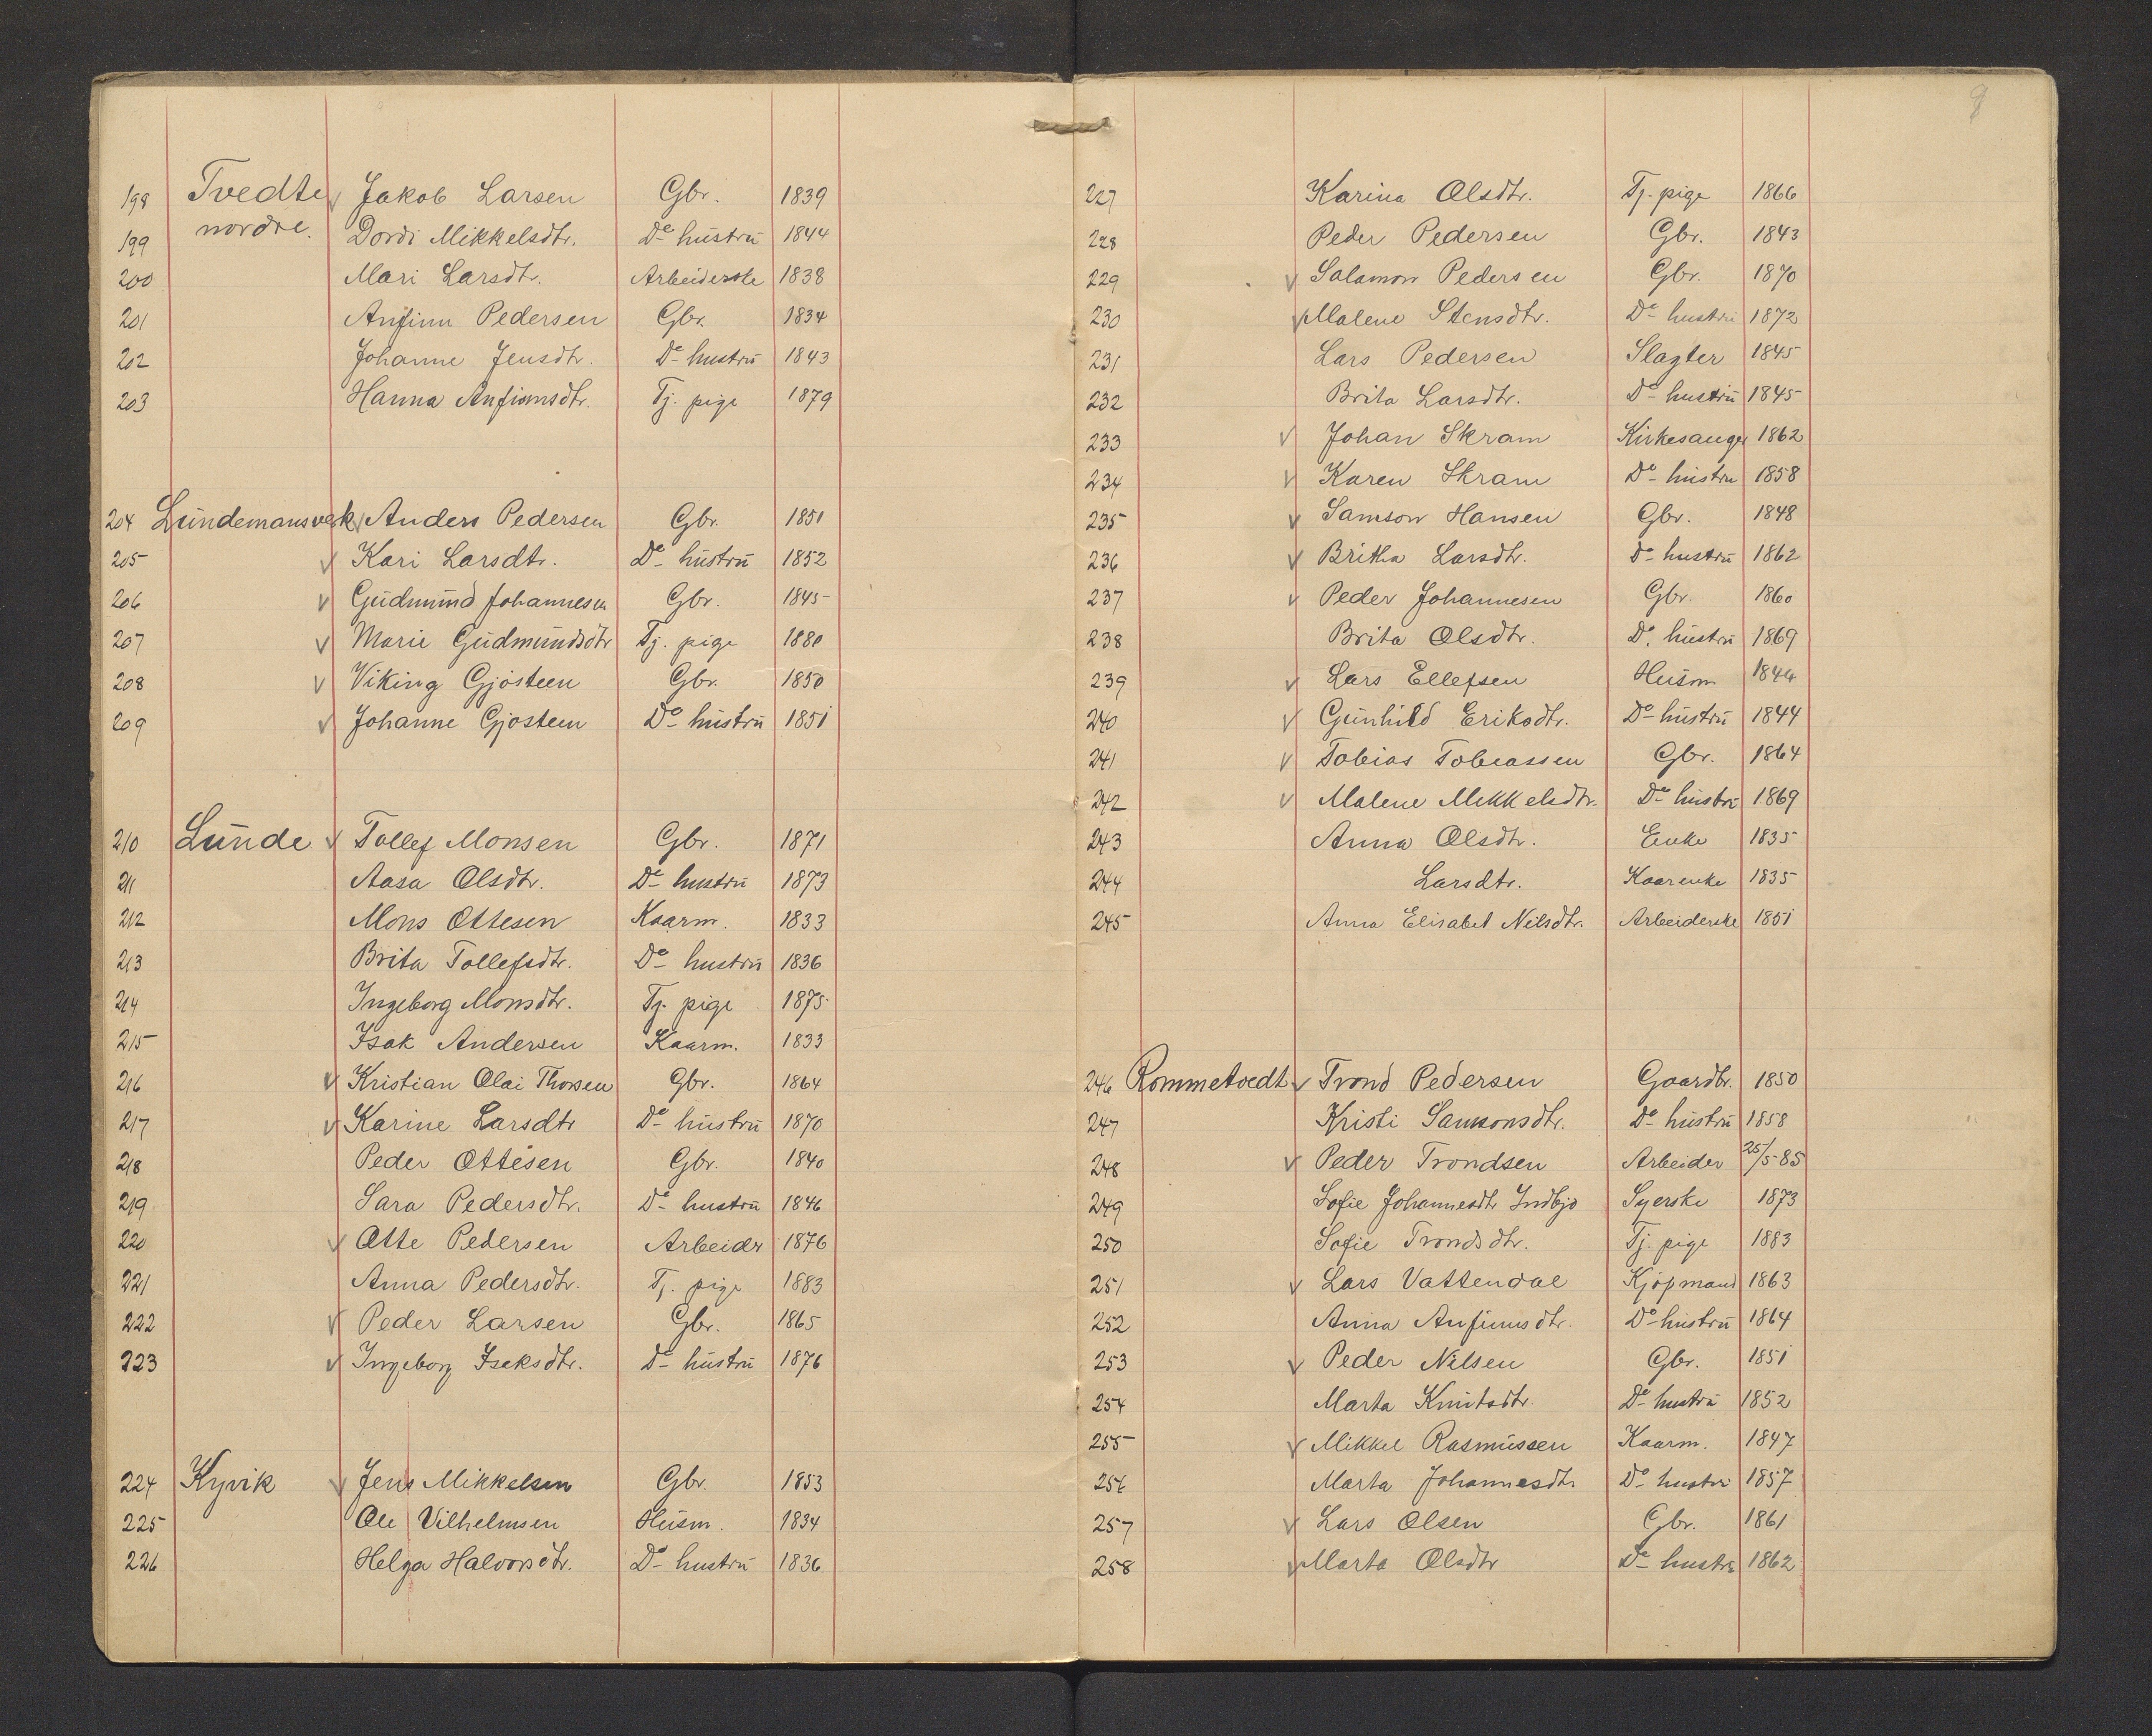 198 Tvedte √ Jakob Larsen Gbr. 1839
199 nordre. Dordi Mikkelsdtr. Do hustru 1844
200 Mari Larsdtr. Arbeiderske 1838
201 Anfinn Pedersen Gbr. 1834
202 Johanne Jensdtr. Do hustru 1843
203 Hanna Anfinnsdtr. Tj. pige 1879
204 Lundemansverk √ Anders Pedersen Gbr. 1851
205 √ Kari Larsdtr. Do hustru 1852
206 √ Gudmund Johannesen Gbr. 1845
207 √ Marie Gudmundsdtr Tj. pige 1880
208 √ Viking Gjøsteen Gbr. 1850
209 √ Johanne Gjøsteen Do hustru 1851
210 Lunde √ Tollef Monsen Gbr. 1871
211 Aasa Olsdtr. Do hustru 1873
212 Mons Ottesen Kaarm. 1833
213 Brita Tollefsdtr. Do hustru 1836
214 Ingeborg Monsdtr. Tj. pige 1875
215 Isak Andersen Kaarm. 1833
216 √ Kristian Olai Thorsen Gbr. 1864
217 √ Karine Larsdtr Do hustru 1870
218 Peder Ottesen Gbr. 1840
219 Sara Pedersdtr. Do hustru 1846
220 √ Otte Pedersen Arbeidr 1876
221 Anna Pedersdtr. Tj. pige 1883
222 √ Peder Larsen Gbr. 1865
223 √ Ingeborg Isaksdtr. Do hustru 1876
224 Kyvik √ Jens Mikkelsen Gbr. 1853
225 Ole Vilhelmsen Husm. 1834
226 Helga Halvorsdtr. Do hustru 1836
9
227 Karina Olsdtr. Tj. pige 1866
228 Peder Pedersen Gbr. 1843
229 √ Salamon Pedersen Gbr. 1870
230 √ Malene Stensdtr. Do hustru 1872
231 Lars Pedersen Slagter 1845
232 Brita Larsdtr. Do hustru 1845
233 √ Johan Skram Kirkesanger 1862
234 √ Karen Skram Do hustru 1858
235 √ Samson Hansen Gbr. 1848
236 √ Britha Larsdtr. Do hustru 1862
237 √ Peder Johannesen Gbr. 1860
238 Brita Olsdtr. Do. hustru 1869
239 √ Lars Ellefsen Husm 1844
240 √ Gunhild Eriksdtr. Do hustru 1844
241 √ Tobias Tobiassen Gbr. 1864
242 √ Malene Mikkelsdtr. Do hustru 1869
243 Anna Olsdtr. Enke 1835
244 Larsdtr. Kaarenke 1835
245 Anna Elisabet Nilsdtr. Arbeiderske 1851
246 Rommetvedt √ Trond Pedersen Gaardbr. 1850
247 Kristi Samsonsdtr. Do hustru 1858
248 √ Peder Trondsen Arbeider 25/5-85
249 Sofie Johannesdtr Indbjo Syerske 1873
250 Sofie Trondsdtr. Tj. pige 1883
251 √ Lars Vattendal Kjøpmand 1863
252 Anna Anfinnsdtr. Do hustru 1864
253 √ Peder Nilsen Gbr. 1851
254 Marta Knutsdtr. Do hustru 1852
255 √ Mikkel Rasmussen Kaarm. 1847
256 Marta Johannesdtr. Do hustru 1857
257 √ Lars Olsen Gbr. 1861
258 √ Marta Olsdtr Do hustru 1862